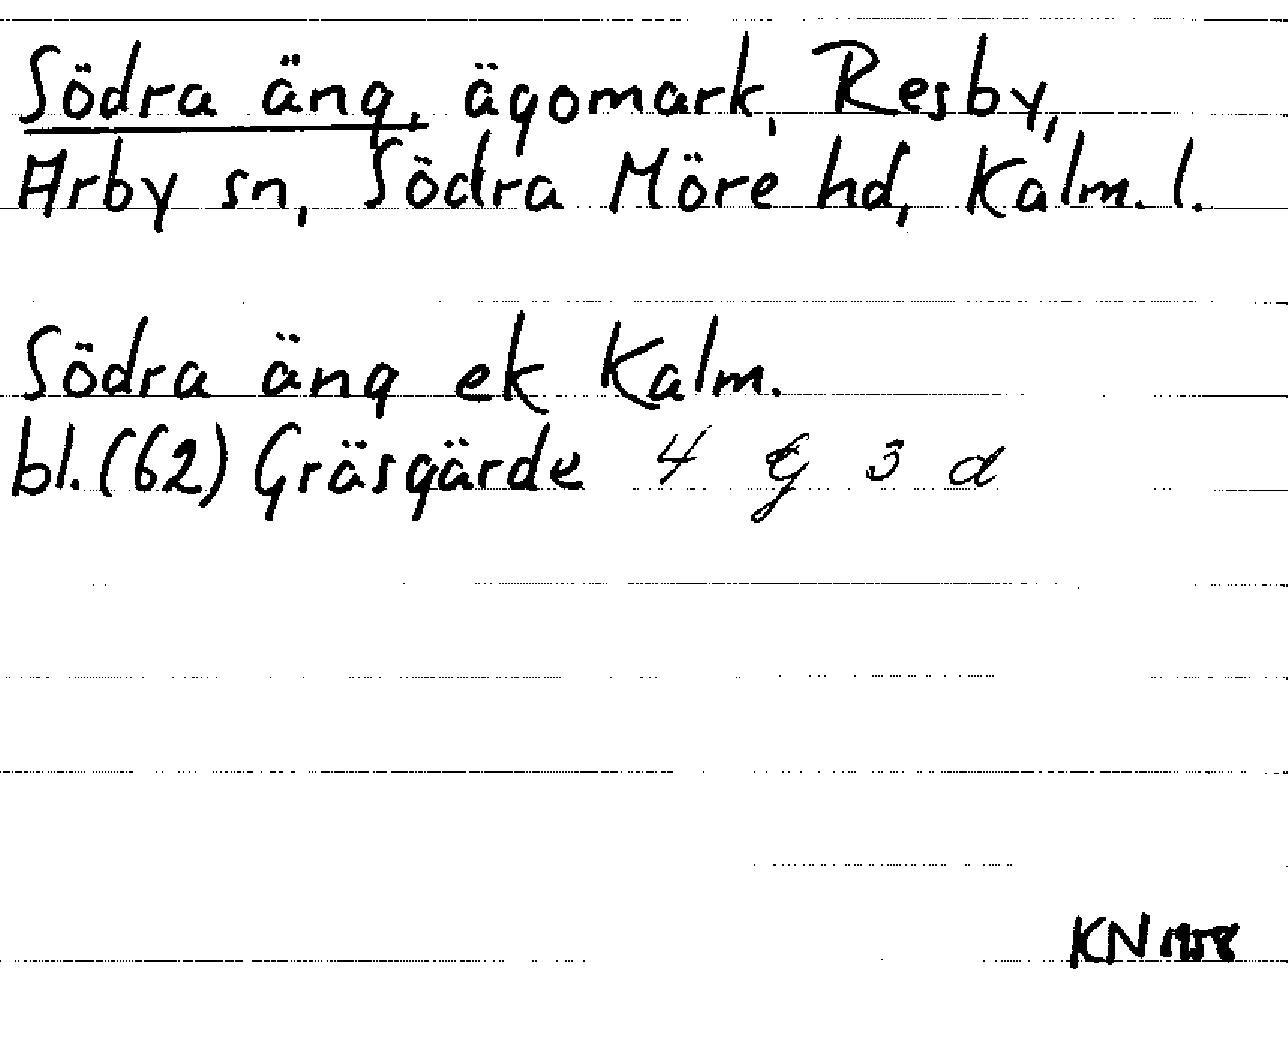 Södra äng, ägomark, Resby,
Arby sn, Södra Möre hd, Kalm. l.
Södra äng ek Kalm.
bl. (62) Gräsgärde 4 G 3 d
KN 1958